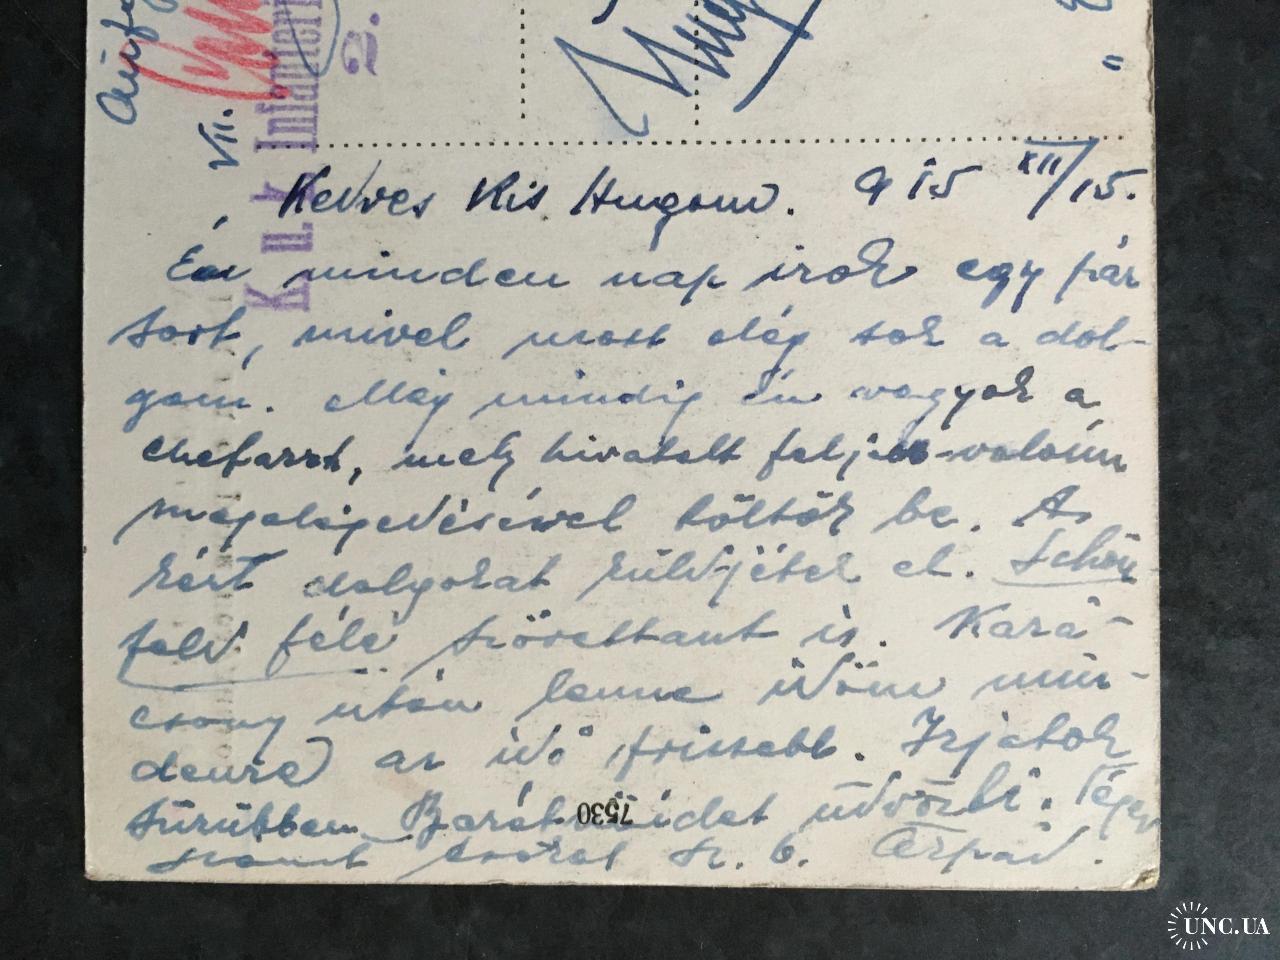 VII.
K. u. k. Infanterie
2.
"
Kedves Kis Hugom. 915 XII/15.
Én minden nap irok egy pár
sort, mivel most elég sok a dol-
gom. Még mindig én vagyok a
chefarzt, mely hivatalt feljebbvalóim
megelégedésével töltök be. A
kért dolgokat küldjétek el. Schön-
feld féle szövettant is. Kará-
csony után lenne időm min-
denre az idő frissebb. Irjatok
sürübben. Barátnőidet üdvözli. Téged
számt csókol sz. b. Árpád.
7530
UNC.UA